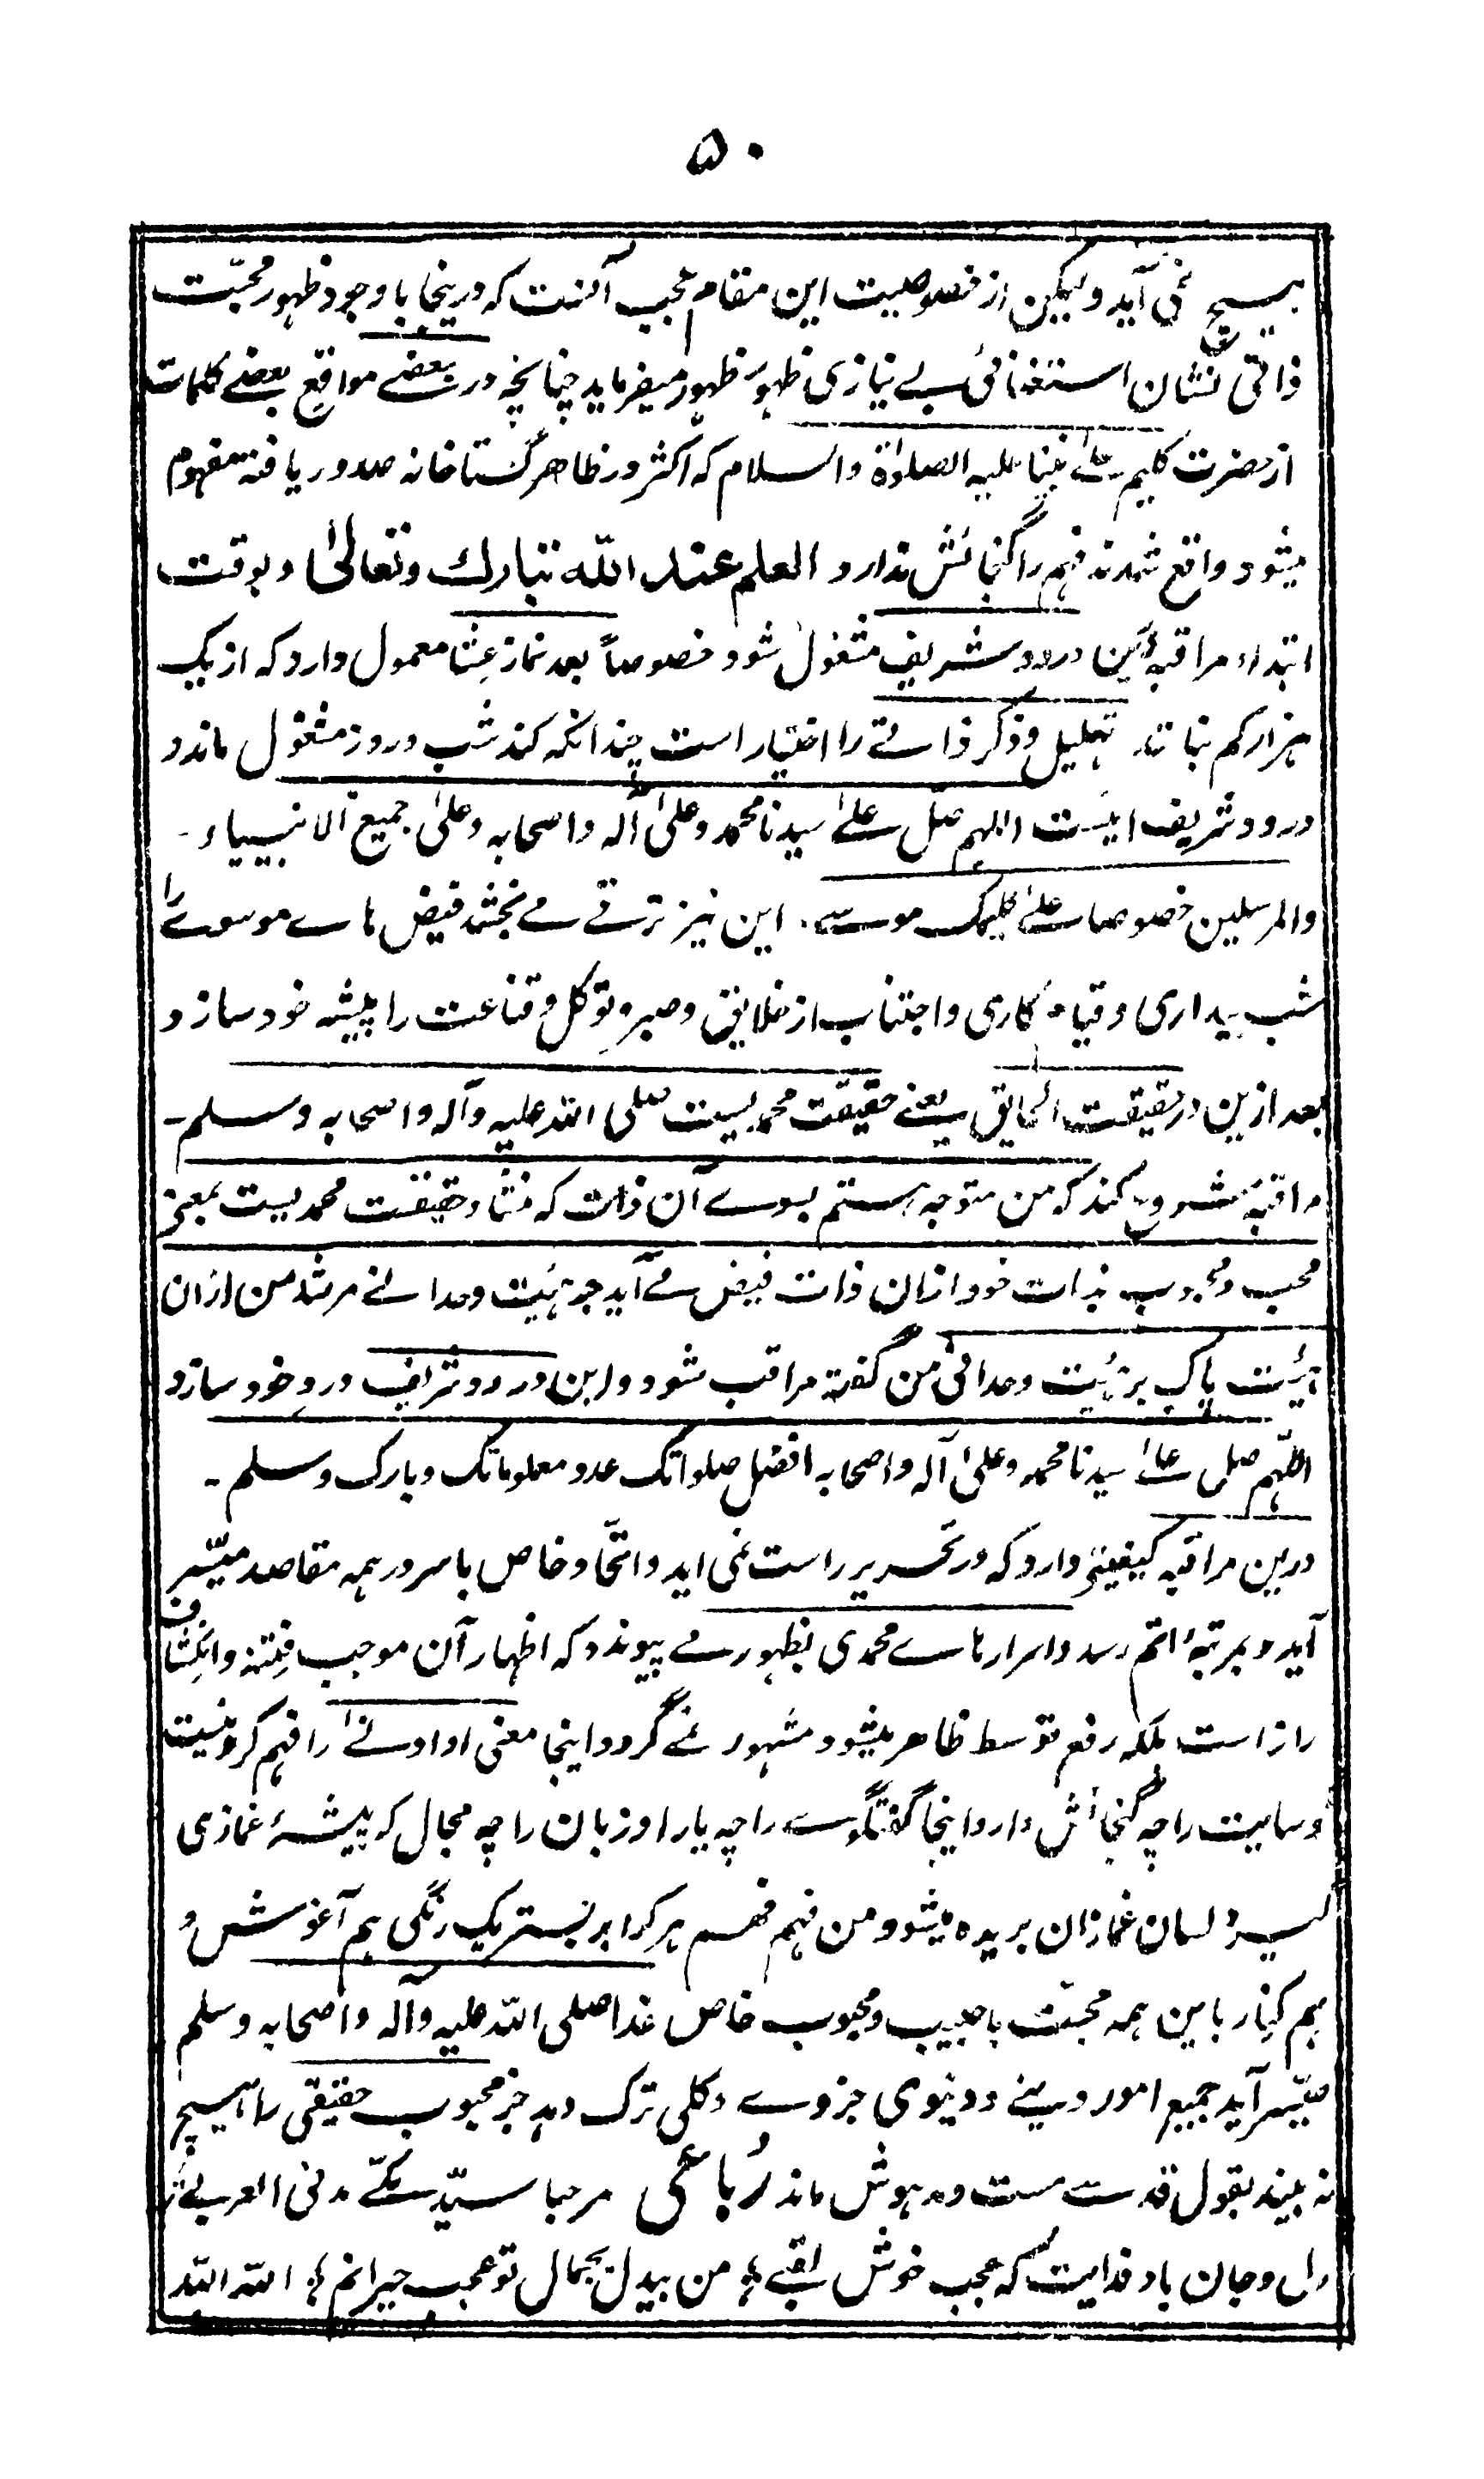 ۵۰
ہیچ نمی آید ولیکن از خصوصیت این مقام عجب آنست کہ درینجا باوجود ظہور محبّت
ذاتی نشان استغنائی بے نیازی ظہور میفرماید چنانچہ در بعضے مواقع بعضے کلمات
از حضرت کلیم علےٰ نبینا علیہ الصلوٰۃ والسلام کہ اکثر در ظاہر گستاخانہ صدور یافتہ مفہوم
میشود واقع شدند فہم را گنجائش ندارد العلم عند اللّٰہ تبارك وتعالیٰ و بوقت
ابتداء مراقبۂ این درود شریف مشغول شود خصوصاً بعد نماز عشا معمول دارد کہ از یک
ہزار کم نباشد تہلیل و ذکر ذاتے را اختیار است چندانکہ کند شب و روز مشغول ماند و
درود شریف اینست اللہم صلّ علےٰ سیدنا محمد وعلیٰ آلہ واصحابہ وعلیٰ جمیع الانبیاء۔
والمرسلین خصوصا علےٰ کلیمک موسے۔ این نیز ترقے مے بخشد فیض ہاے موسوے را
شب بیداری و قیام کاری و اجتناب از خلایق و صبر و توکل و قناعت را پیشہ خود سازد
بعد ازین در حقیقت الحقایق یعنے حقیقت محمدیست صلی اللہ علیہ وآلہ واصحابہ وسلم۔
مراقبہ مشروع کند کہ من متوجہ ہستم بسوے آن ذات کہ منشاء حقیقت محمدیست بمعنے
محب و محبوب بذات خود ازان ذات فیض مے آید بر ہئیت وحدانے مرشد من ازان
ہئیت پاک بر ہئیت وحدانی من گفتہ مراقب شود و این درود شریف ورد خود سازد
اللّٰہم صل علےٰ سیدنا محمد وعلیٰ آلہ واصحابہ افضل صلواتک عدد معلوماتک وبارک وسلم۔
درین مراقبہ کیفیتے دارد کہ در تحریر راست نمی اید و اتحاد خاص با سرور ہمہ مقاصد میسّر
آید و بمرتبۂ اتم رسد و اسرار ہاے محمدی بظہور مے پیوندد کہ اظہار آن موجب فتنہ و انکشاف
راز است بلکہ رفع توسط ظاہر میشود مشہور نمے گردد اینجا معنی او ادنےٰ را فہم کر
وسایت را چہ گنجائش دارد اینجا گفتگوے را چہ یارا و زبان را چہ مجال کہ پیشۂ غمازی
لسان غمازان بریدہ میشود من فہم فہم ہر کرا بر بستر یک رنگی ہم آغوش و
ہم کنار باین ہمہ محبّت با حبیب و محبوب خاص خدا صلی اللہ علیہ وآلہ واصحابہ وسلم
میسّر آید جمیع امور دینے و دنیوی جزوے و کلی ترک دہد جز محبوب حقیقی را ہیچ
نہ بیند بقول قدسے مست و مدہوش ماند رُباعی مرحبا سیّد مکّے مدنی العربےؐ
دل و جان باد فدایت کہ عجب خوش لقبے ؛ من بیدل بجمال تو عجب حیرانم ؛ اللّٰہ اللّٰہ